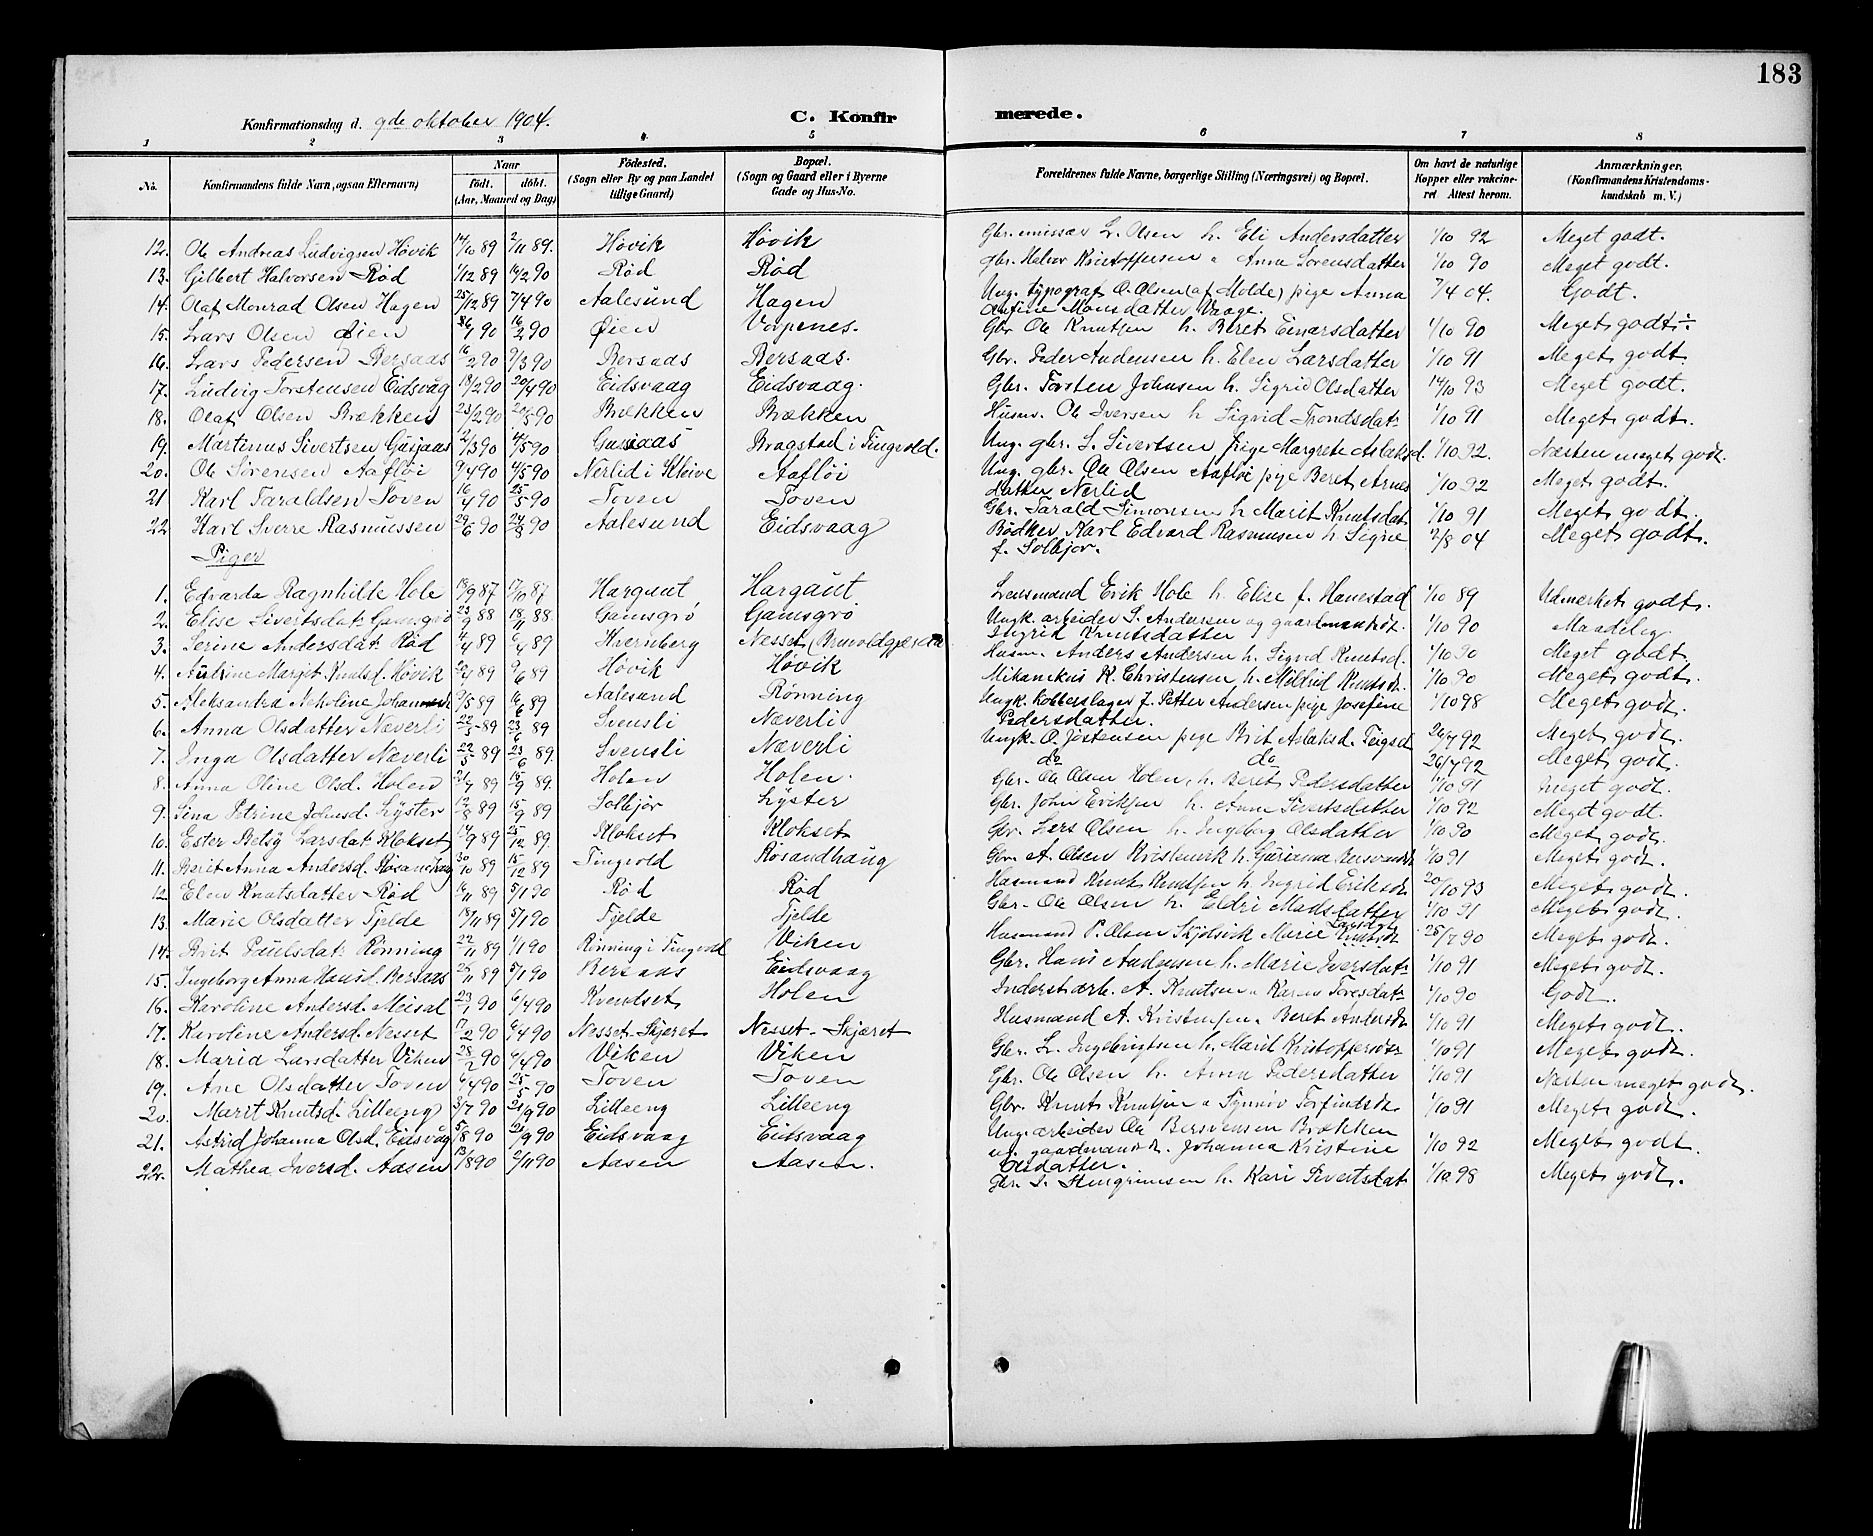 183
Konfirmationsdag d. 9de oktober 1904. C. Konfirmerede.
1 2 3 4 5 6 7 8
No. Konfirmandens fulde Navn, ogsaa Efternavn) Naar födt. döbt. (Aar, Maaned og Dag) Födested. (Sogn eller By og paa Landet tillige Gaard) Bopæl. (Sogn og Gaard eller i Byerne Gade og Hus-No. Forældrenes fulde Navne, borgerlige Stilling (Næringsvei) og Bopæl. Om havt de naturlige Kopper eller vakcineret Attest herom. Anmærkninger. (Konfirmandens Kristendomskundskab m. V.)
12. Ole Andreas Ludvigsen Høvik 14/10 89 2/11 89. Høvik Høvik Gbr. emissær L. Olsen h. Eli Andersdatter 1/10 92 Meget godt.
13. Gilbert Halvorsen Rød 1/12 89 14/2 90 Rød Rød gbr. Halvor Kristoffersen o Anne Sørensdatter 1/10 90 Meget godt.
14. Olaf Monrad Olsen Hagen 25/12 89 7/4 90 Aalesund Hagen Ung. typograf O. Olsen (af Molde) pige Anna 7/4 04. Godt.
Monsdatter Vaage.
15. Lars Olsen Øien 90 16/2 90 Øien Vorpenes. Gbr Ole Knutsen h. Beret Einarsdatter 1/10 90 Meget godt ÷
16. Lars Pedersen Bersaas 16/2 90 9/3 90 Bersaas Bersaas. Gbr. Peder Andersen h. Elen Larsdatter 1/10 91 Meget godt
17. Ludvig Torstensen Eidsvåg 18/2 90 20/4 90 Eidsvaag Eidsvaag. Gbr. Torsten Johnsen h. Sigrid Olsdatter 14/10 93 Meget godt.
18. Olaf Olsen Brækken 23/2 90 20/5 90 Brækken Brækken Husm. Ole Iversen h Sigrid Trondsdat: 1/10 91 Meget godt.
19. Martinus Sivertsen Gusjaas 2/3 90 4/5 90 Gusjaas Bragstad i Tingvold. Ung. gbr. S. Sivertsen pige Margrete Aslaksd. 1/10 92. Næsten meget godt.
20. Ole Sørensen Aafløi 9/4 90 4/5 90 Nerlid i Kleive Aafløi Ung. gbr. Ole Olsen Aafløi pige Beret Arnes 1/10 92 Meget godt.
datter Nerlid
21 Karl Taraldsen Toven 16/4 90 25/5 90 Toven Toven Gbr. Tarald Simonsen h Marit Knutsdat. 1/10 91 Meget godt.
22 Karl Sverre Rasmussen 29/6 90 24/8 90 Aalesund Eidsvaag Bødker Karl Edvard Rasmusen h. Signe 12/8 04 Meget godt.
f. Solbjør.
Piger
1. Edvarda Ragnhilde Hole 18/9 87 17/10 87 Hargaut Hargaut Lensmand Erik Hole h. Elise f. Hanestad 1/10 89 Udmerket godt.
2. Elise Sivertsdat: Gamsgrø 23/9 88 18/11 88. Gamsgrø Gamsgrø Ungk. arbeider S. Andersen og gaardmandsdt. 1/10 90 Maadelig
Ingrid Knutsdatter
3. Serine Andersdat: Rød 4/4 89 6/4 89 Nesset Husm. Anders Andersen h. Sigrid Knutsd. 1/10 90 Meget godt
4. Margit Knutsd. Høvik 22/4 89 9/6 89 Høvik Høvik Mikanikus K. Christensen h. Mildrid Knutsdt. 1/10 90 Meget godt.
5. Aleksandra 9/5 89 16/6 89 Aalesund Rønning Ungk. Kobberslager J. Petter Andersen pige Josefine 1/10 98 Meget godt.
Pedersdatter.
6. Anna Olsdatter Næverli 22/5 89 23/6 89. Svensli Næverli Ungk. O. Jostensen pige Brit Aslaksd. Teigset 26/7 92 Meget godt.
7. Inga Olsdatter Næverli 22/5 89 23/6 89. Svensli Næverli do do 26/7 92 Meget godt.
8. Anna Oline Olsd. Holen 21/7 89 15/9 89. Holen Holen. Gbr. Ole Olsen Holen, h. Beret Pedersdatter 1/10 91 Meget godt.
9. Sina Petrine Johnsd. Lyster 12/8 89 15/9 89 Solbjør Lyster Gbr. John Eriksen h. Anne Sivertsdatter 1/10 92 Meget godt.
10. Ester Betsy Larsdat: Klokset 14/9 89 25/12 89. Klokset Klokset Gbr. Lars Olsen h. Ingeborg Olsdatter 1/10 90 Meget godt.
11. Berit Anna Andersd. Røsandhaug 30/10 89 15/12 89 Tingvold Røsandhaug Gbr. A. Olsen Kristvik h. Guriana 1/10 91 Meget godt.
12 Elen Knutsdatter Rød 14/11 89 5/1 90 Rød Rød Husmand Knut Knutsen h. Ingrid Eriksdt. 20/10 93 Meget godt.
13. Marie Olsdatter Fjelde 18/11 89 5/1 90 Fjelde Fjelde Gbr. Ole Olsen h. Eldri Madsdatter 1/10 91 Meget godt.
14. Brit Paulsdat: Rønning 22/11 89 1/1 90 Rønning i Tingvold Viken Husmand P. Olsen Skjølsvik Marie 25/7 90 Meget godt.
15. Ingeborg Anna Hansd. Bersaas 25/11 89 5/1 90 Bersaas Eidsvaag Gbr. Hans Andersen h. Marie Iversdat: 1/10 91 Meget godt.
16. Karoline Andersd. Meisal 23/1 90 6/4 90 Kvendset Holen Inderstarb. A. Knutsen o Karen Toresdat: 1/10 90 Godt.
17. Karoline Andersd. Nesset 17/2 90 6/4 90 Nesset-Skjæret Nesset-Skjæret Husmand A. Kristensen o Beret Andersdt 1/10 91 Meget godt.
18. Maria Larsdatter Viken 28/2 90 4/4 90 Viken Viken Gbr. L. Ingebrigtsen h. Marit Kristoffersdtr 1/10 91 Meget godt.
19. Ane Olsdatter Toven 6/4 90 25/5 90 Toven Toven Gbr. Ole Olsen h. Anna Pedersdatter 1/10 91 Næsten meget godt.
20. Marit Knutsd. Lilleeng 3/7 90 21/9 90 Lilleeng Lilleeng Gbr. Knut Knutsen o Synnøv Torfindsdt. 1/10 91 Meget godt.
21. Astrid Johanna Olsd. Eidsvåg 5/8 90 21/9 90 Eidsvaag Eidsvaag Ung. arbeider Ole Bersvensen Brækken 1/10 92 Meget godt.
ug. gaardmandsdt. Johanna Kristine
Olsdatter.
22. Mathea Iversd. Aasen 13/8 90 2/11 90 Aasen Aasen. Gbr. I. Steingrimsen h. Kari Sivertsdat. 1/10 98 Meget godt.